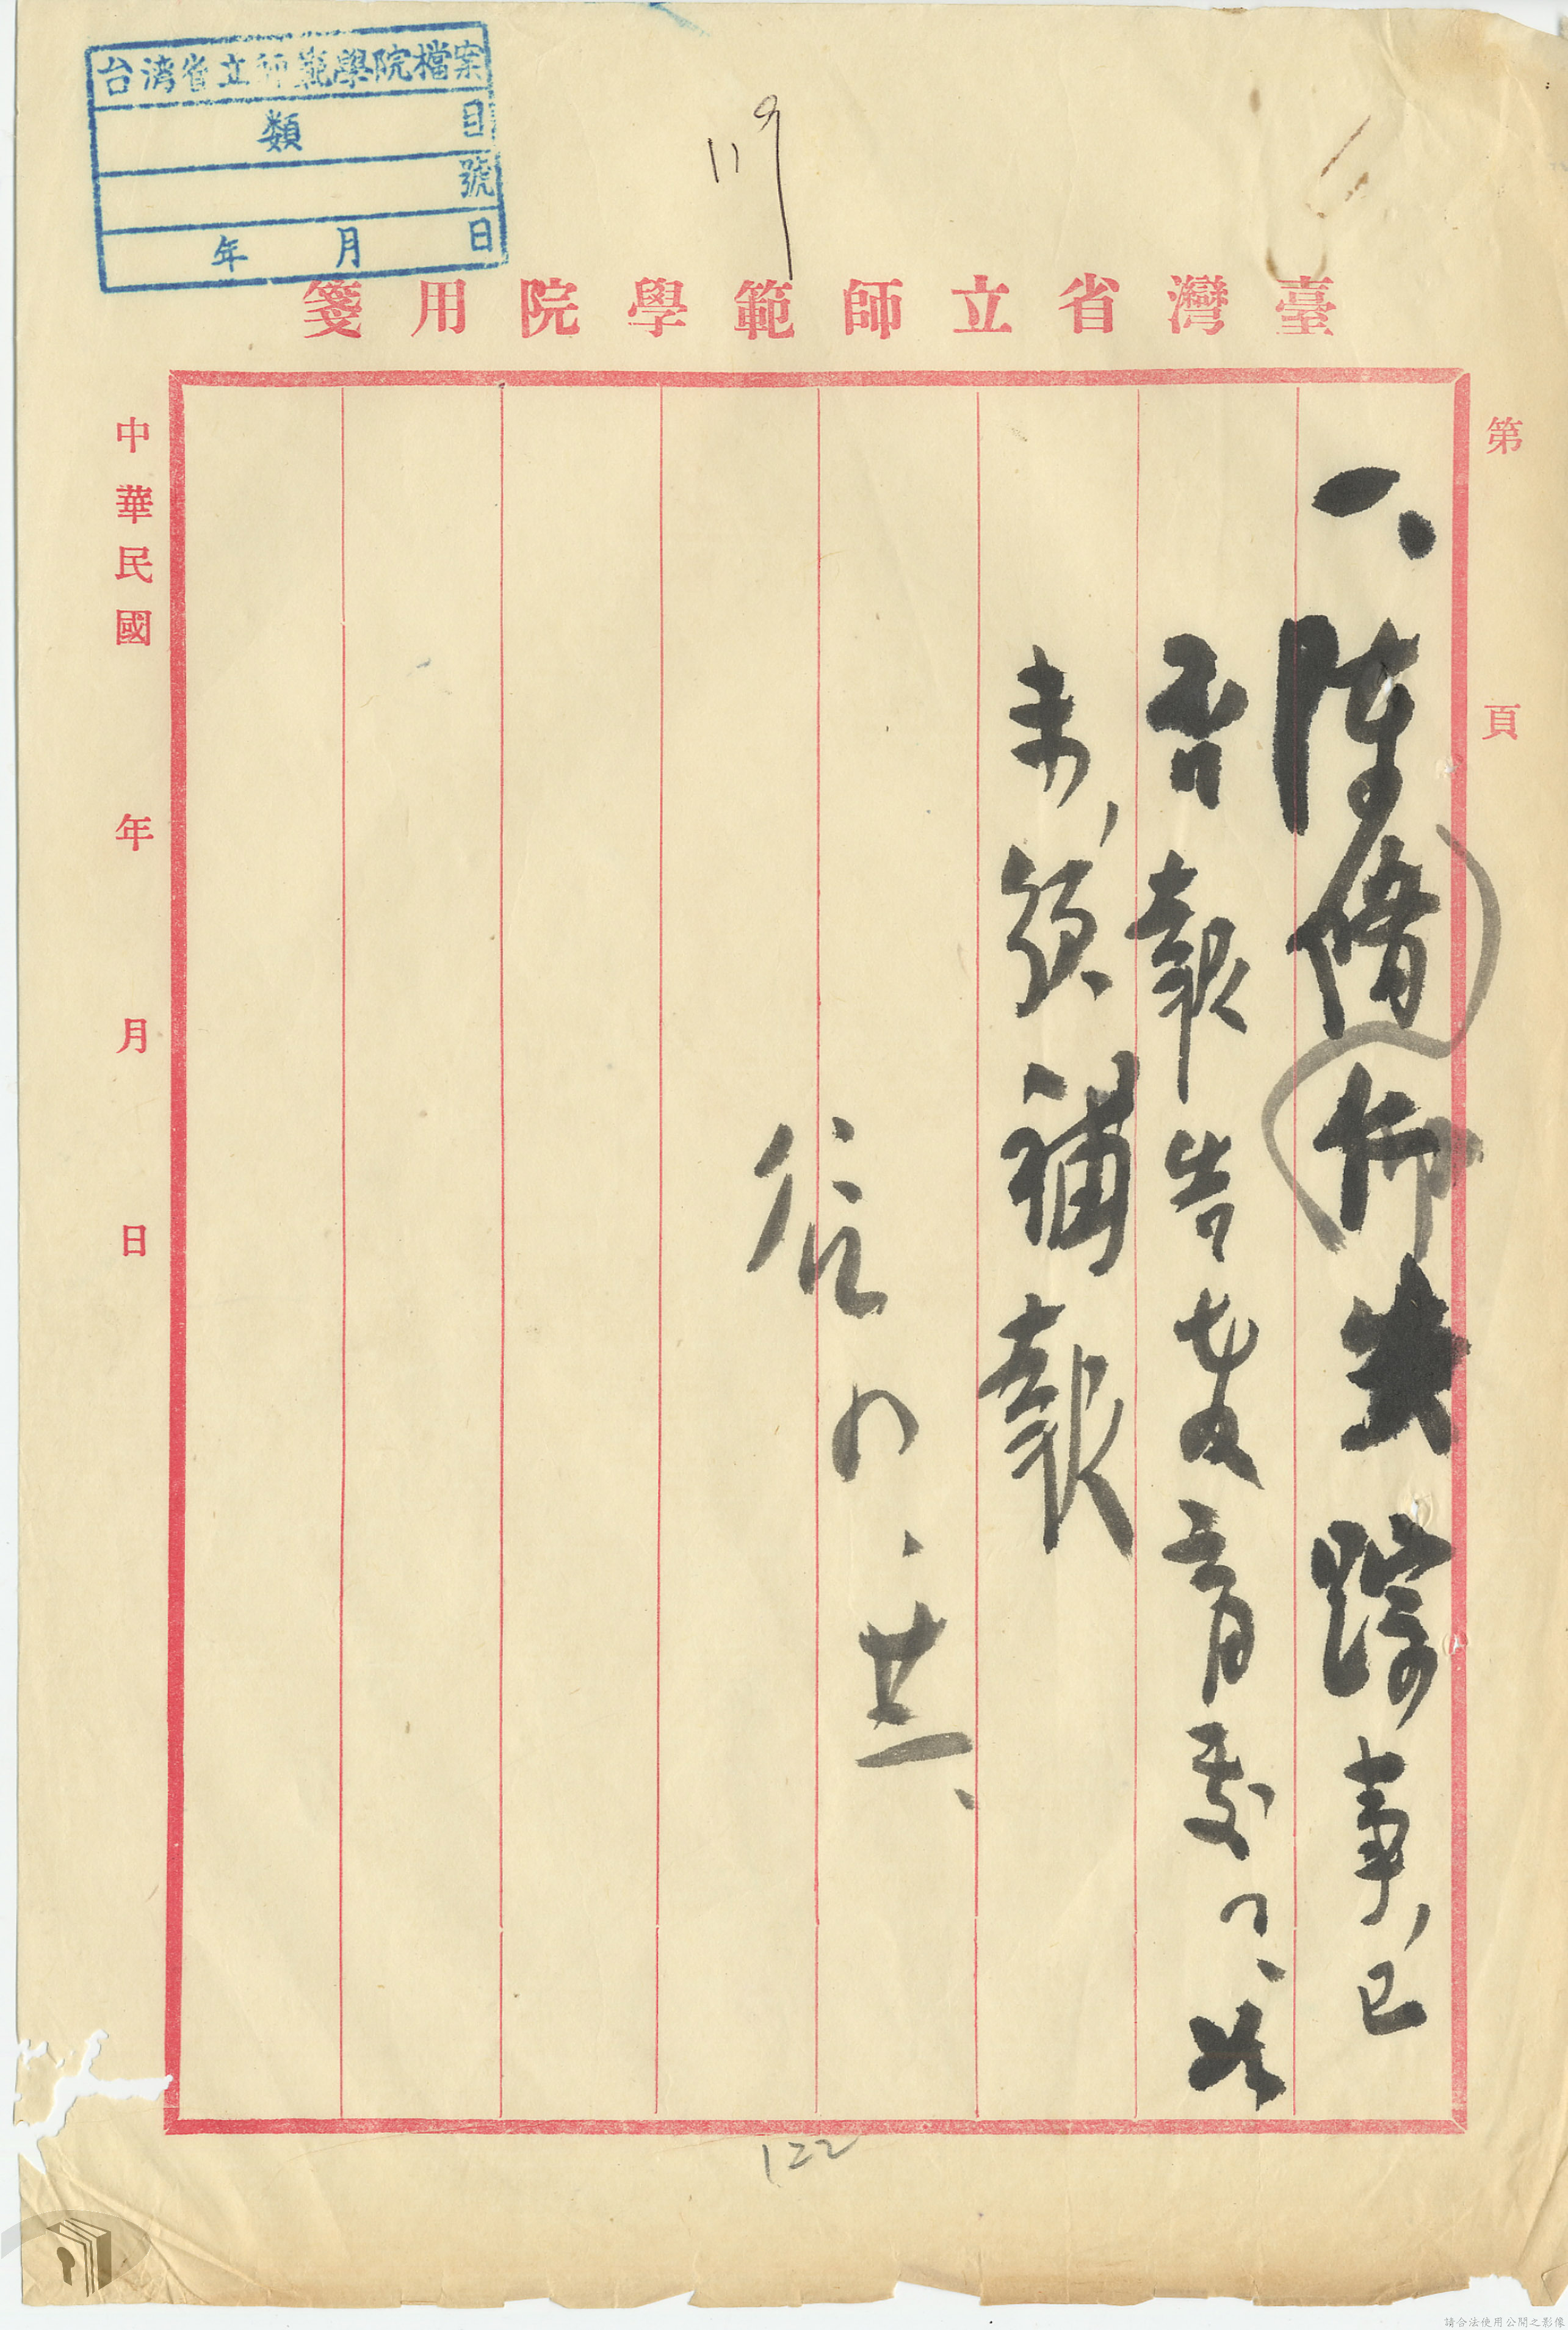 台湾省立師範學院檔案
類 目
號
年 月 日
119
臺灣省立師範學院用箋
第 頁
一、陳脩仰失踪事,已
否報告教育處了、如
未,須補報
四、廿一、
中華民國 年 月 日
122
請合法使用公開之影像